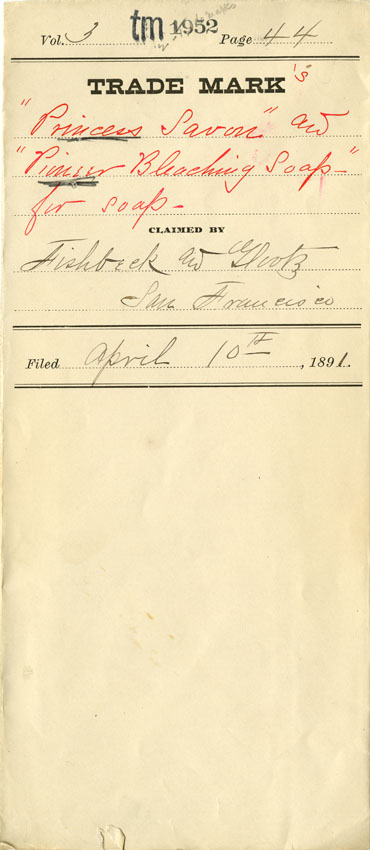 tm 1952
Vol. 3 Page 44
TRADE MARK's
"Princess Savon" and
"Pioneer Bleaching Soap"
for soap -
CLAIMED BY
Fishbeck and Glootz
San Francisco
Filed April 10th, 1891.